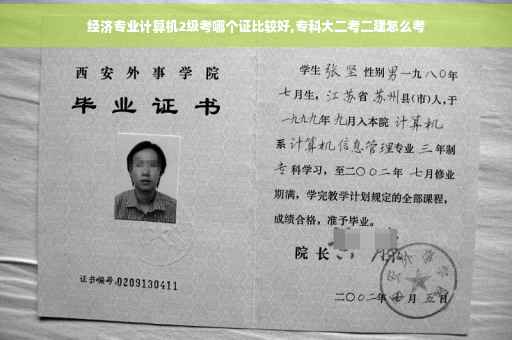 经济专业计算机2级考哪个证比较好,专科大二考二建怎么考
西安外事学院
毕业证书
证书编号:0209130411
学生 张坚 性别男一九八〇年
七月生,江苏省苏州县(市)人,于
一九九九年九月入本院 计算机
系计算机信息管理专业 三 年制
专科学习,至二〇〇二年 七月修业
期满,学完教学计划规定的全部课程,
成绩合格,准予毕业。
院长
二〇〇二年 月五日